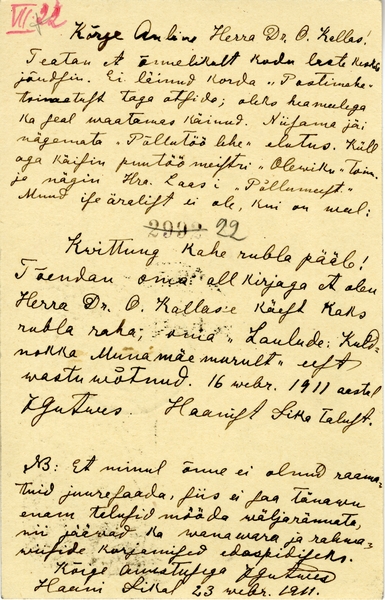 VII; 22
Kõrge Auuline Herra Dr. O. Kallas!
Teatan et õnnelikolt kodu laste keske
jõudsin. Ei läinud korda "Postimehe"
toimetust taga otsida; oleks heameelega
ka seal waatamas käinud. Niisama jäi
nägemata "Põllutöö lehe" elutus. Küll
aga käisin puutöö meistri "Olewiku"
ja nägin Hra. Laas'i "Põllumeest"
Muud iseäralist ei ole, kui on weel:
2992 22
Kwittung kahe rubla pääle!
Tõendan oma allkirjaga et olen
Herra Dr. O. Kallas'e käest kaks
rubla raha, oma "Laulude: Kuld-
nokka Munamäe murult" eest
wastu wõtnud. 16 webr. 1911 aastal
J Gutwes. Haanist Sika talust.
NB: Et minul õnne ei olnud raama-
tuid juure saada, siis ei saa tänawu
enam talusid mööda wäljarännata,
nii jääwad ka wanawara ja rahwa-
wiiside korjamised edaspidiseks.
Kõige austusega J Gutwes
Haani Sikal 23 webr. 1911.